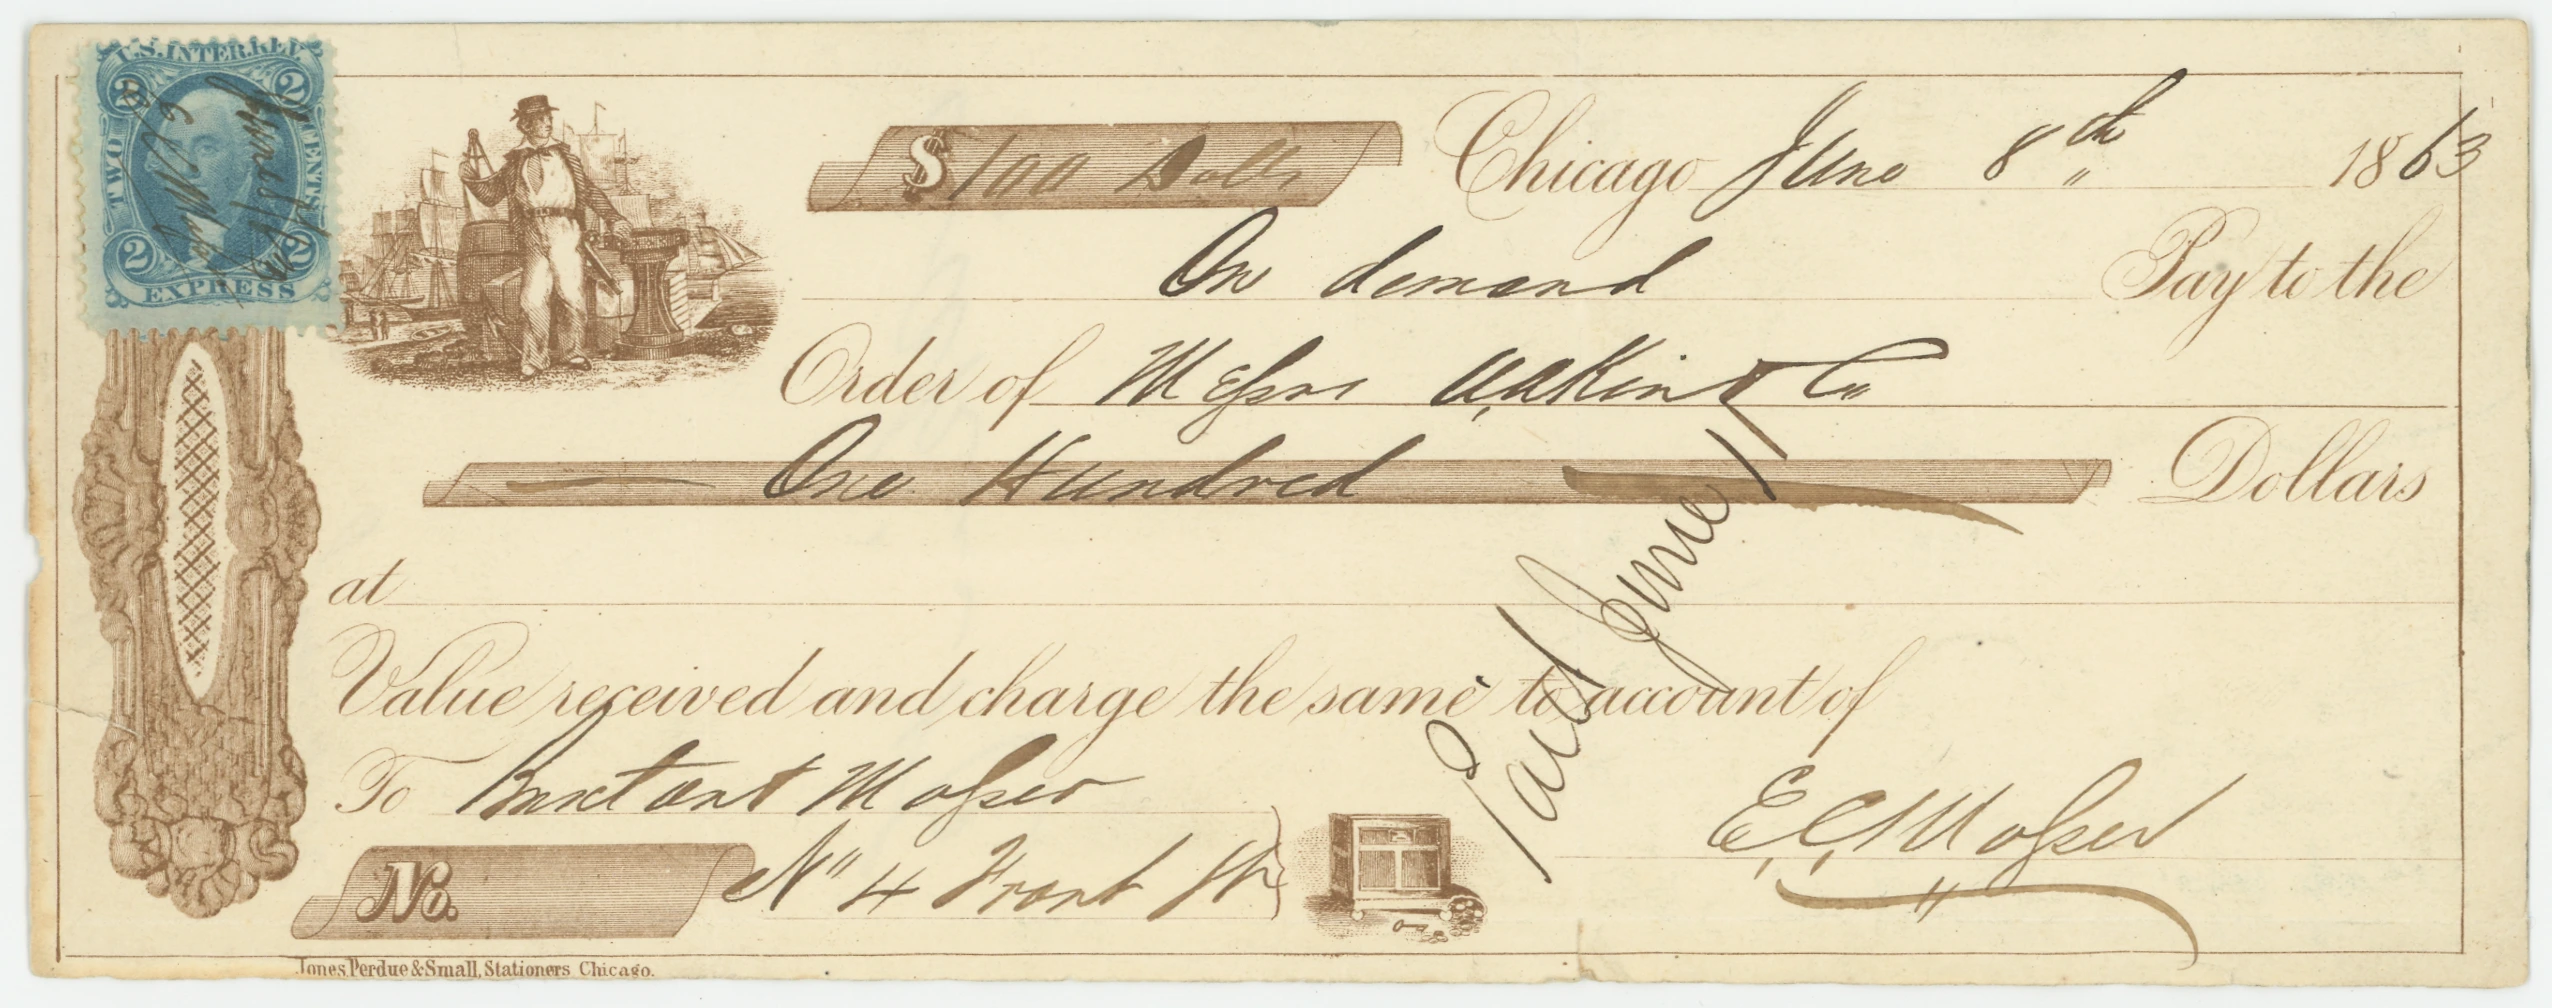 U.S. INTER. REV.
2 2
TWO CENTS
2 2
EXPRESS
$ 100 Dolls
Chicago June 8th 1863
On demand Pay to the
Order of Messrs Eakin & Co
One Hundred Dollars
at
Value received and charge the same to account of
Paid June 11
To Moser
E. C. Moser
No. No 4 Front St
Jones, Perdue & Small, Stationers Chicago.